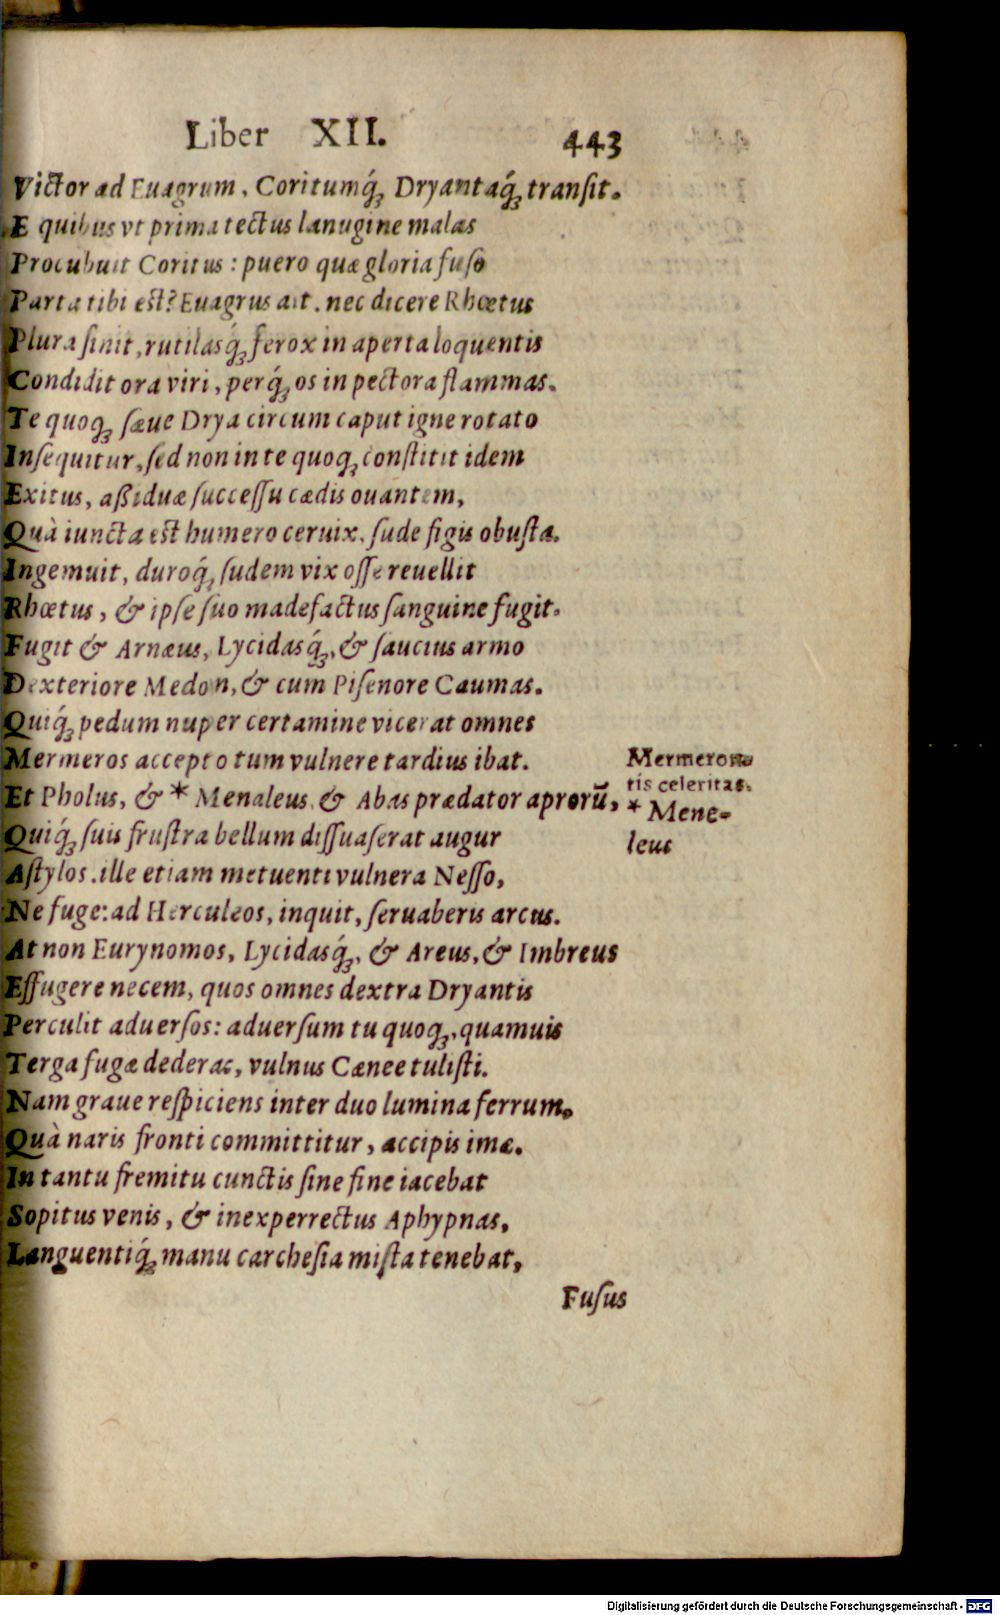 Liber XII. 443
Victor ad Euagrum, Coritumq́ꝫ Dryantaq́ꝫ transit.
E quibus vt prima tectus lanugine malas
Procubuit Coritus: puero quæ gloria fuso
Parta tibi est? Euagrus ait. nec dicere Rhœtus
Plura sinit, rutilasq́ꝫ ferox in aperta loquentis
Condidit ora viri, perq́ꝫ os in pectora flammas.
Te quoqꝫ sæue Drya circum caput igne rotato
Insequitur, sed non in te quoqꝫ constitit idem
Exitus, aßiduæ successu cædis ouantem,
Quà iuncta est humero ceruix, sude figis obusta.
Ingemuit, duroq́ꝫ sudem vix osse reuellit
Rhœtus, & ipse suo madefactus sanguine fugit.
Fugit & Arnæus, Lycidasq́ꝫ, & saucius armo
Dexteriore Medon, & cum Pisenore Caumas.
Quiq́ꝫ pedum nuper certamine vicerat omnes
Mermeros accepto tum vulnere tardius ibat.
Et Pholus, & * Menaleus, & Abas prædator aprorũ,
Quiq́ꝫ suis frustra bellum dissuaserat augur
Astylos. ille etiam metuenti vulnera Nesso,
Ne fuge: ad Herculeos, inquit, seruaberis arcus.
At non Eurynomos, Lycidasq́ꝫ, & Areus, & Imbreus
Effugere necem, quos omnes dextra Dryantis
Perculit aduersos: aduersum tu quoqꝫ, quamuis
Terga fugæ dederas, vulnus Cænee tulisti.
Nam graue respiciens inter duo lumina ferrum,
Quà naris fronti committitur, accipis imæ.
In tantu fremitu cunctis sine fine iacebat
Sopitus venis, & inexperrectus Aphypnas,
Languentiq́ꝫ manu carchesia mista tenebat,
Fusus
Mermeron-
tis celeritas.
* Mene-
leus
Digitalisierung gefördert durch die Deutsche Forschungsgemeinschaft - DFG